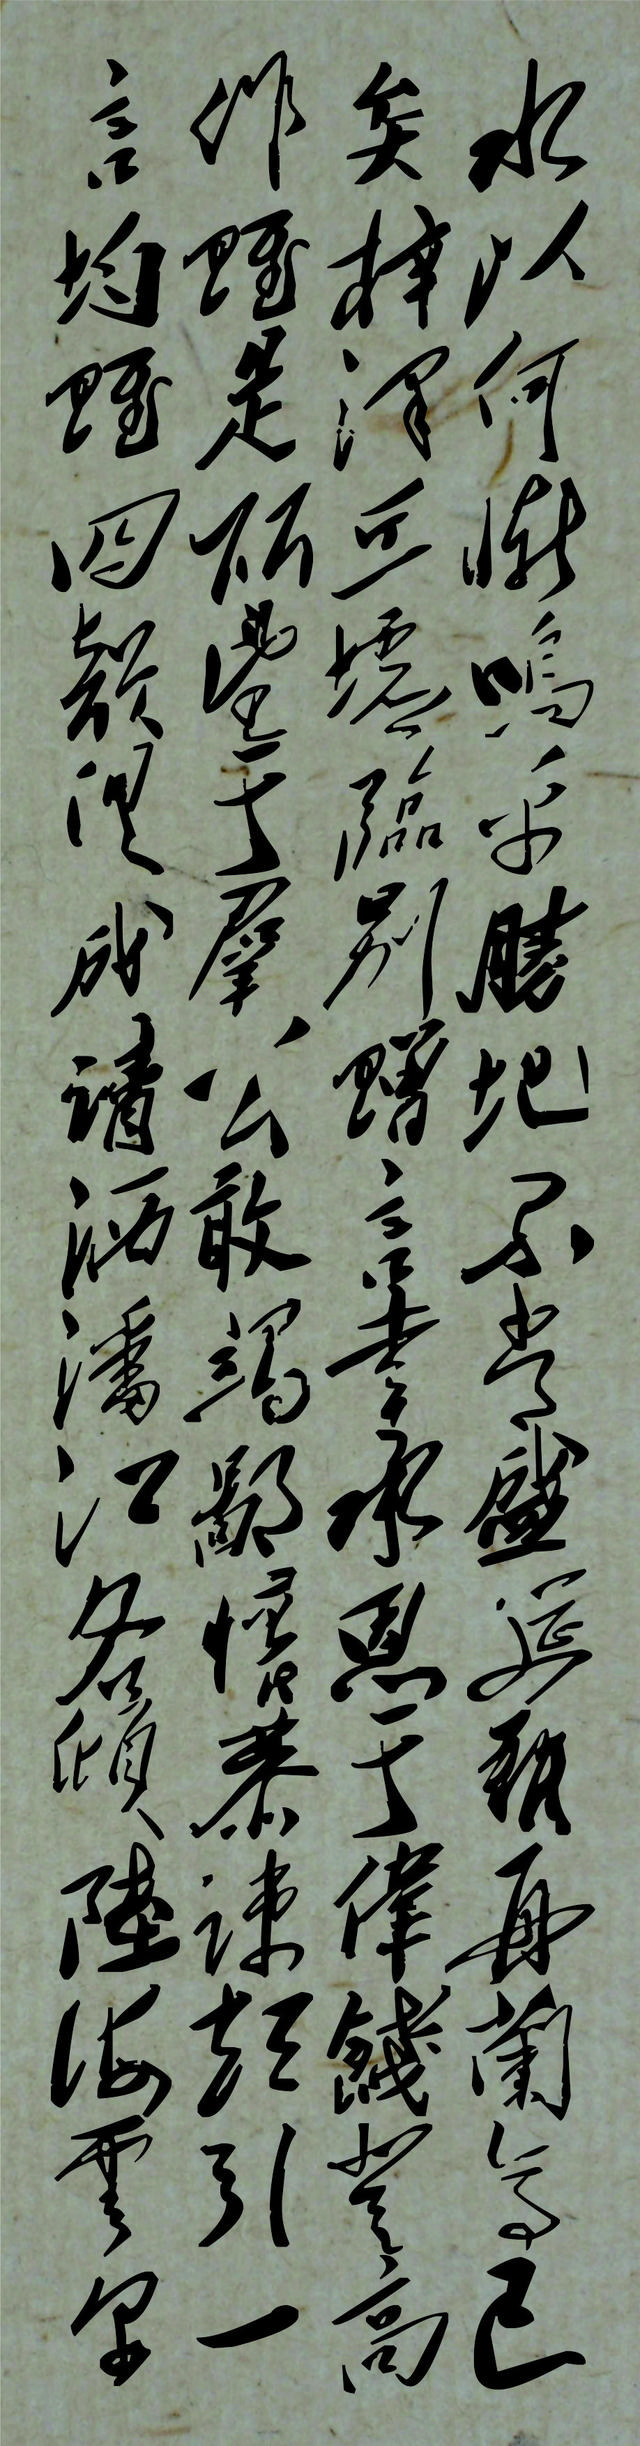 水以何慚嗚乎勝地不常盛筵難再蘭亭已
矣梓澤丘墟臨別贈言幸承恩于偉餞登高
作賦是所望于羣公敢竭鄙懷恭疎短引一
言均賦四韻俱成請洒潘江各傾陸海雲尔